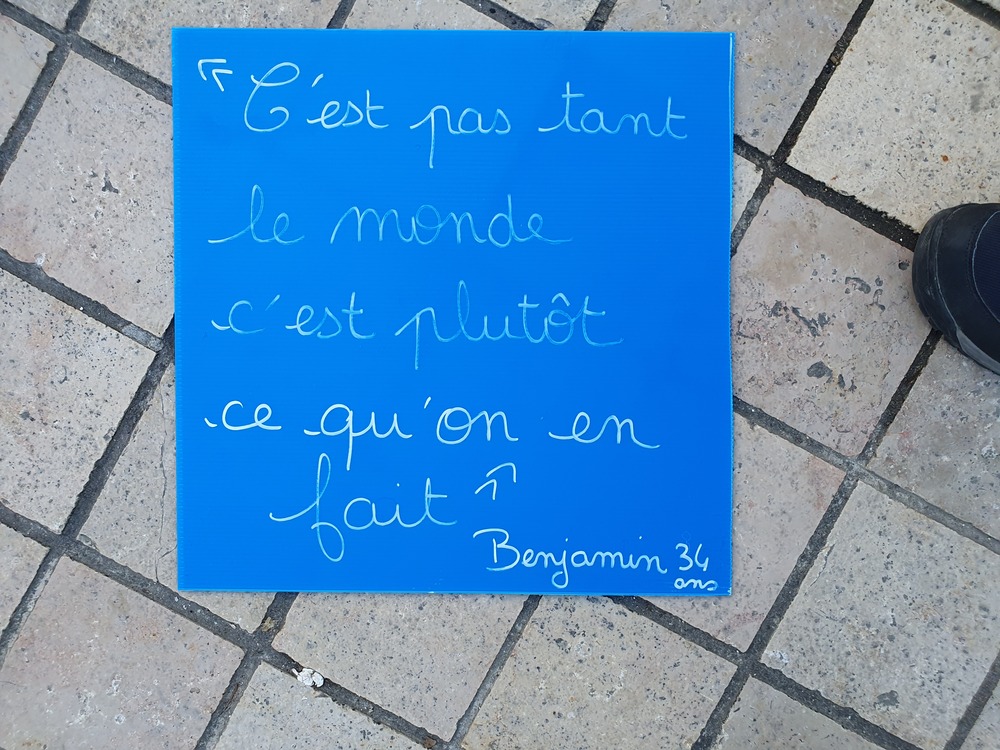 " C'est pas tant
le monde
c'est plutôt
ce qu'on en
fait "
Benjamin 34
ans